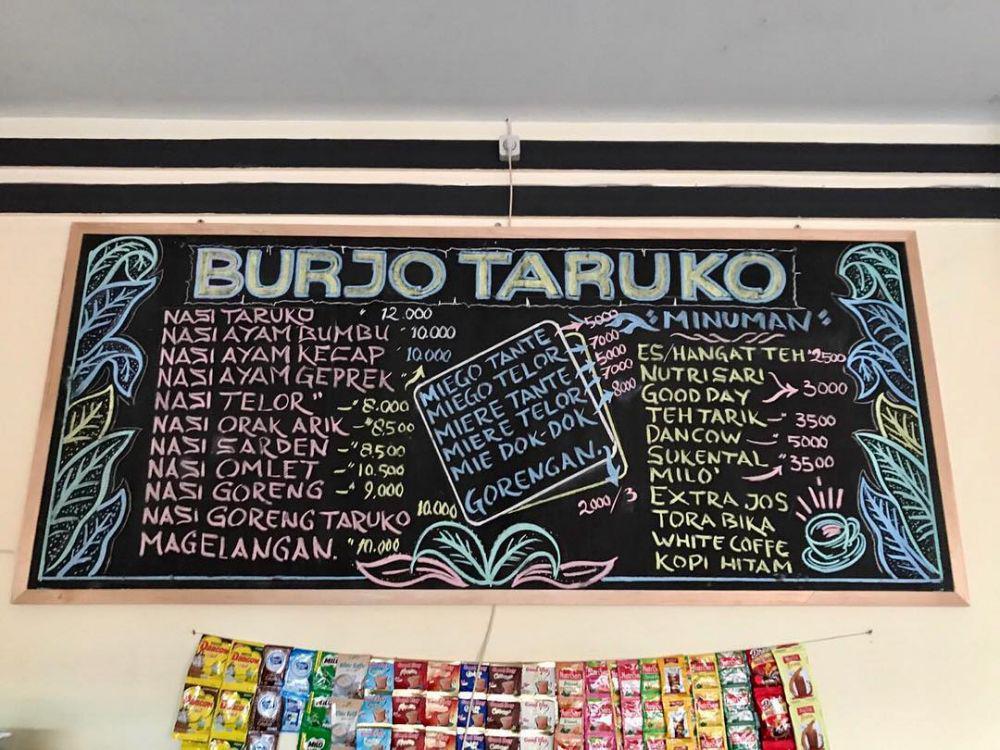 BURJO TARUKO
NASI TARUKO " 12.000
NASI AYAM BUMBU " 10.000
NASI AYAM KECAP " 10.000
NASI AYAM GEPREK "
NASI TELOR " 8.000
NASI ORAK ARIK " 8.500
NASI SARDEN " 8500
NASI OMLET " 10.500
NASI GORENG " 9.000
NASI GORENG TARUKO 10.000
MAGELANGAN. " 10.000
MIEGO TANTE 5000
MIEGO TELOR 7000
MIERE TANTE 5000
MIERE TELOR 7000
MIE DOK-DOK 8000
GORENGAN. 2000/3
"MINUMAN"
ES/HANGAT TEH " 2500
NUTRISARI
GOOD DAY 3000
TEH TARIK " 3500
DANCOW " 5000
SUKENTAL " 3500
MILO
EXTRA JOS
TORA BIKA
WHITE COFFE
KOPI HITAM
DANCOW